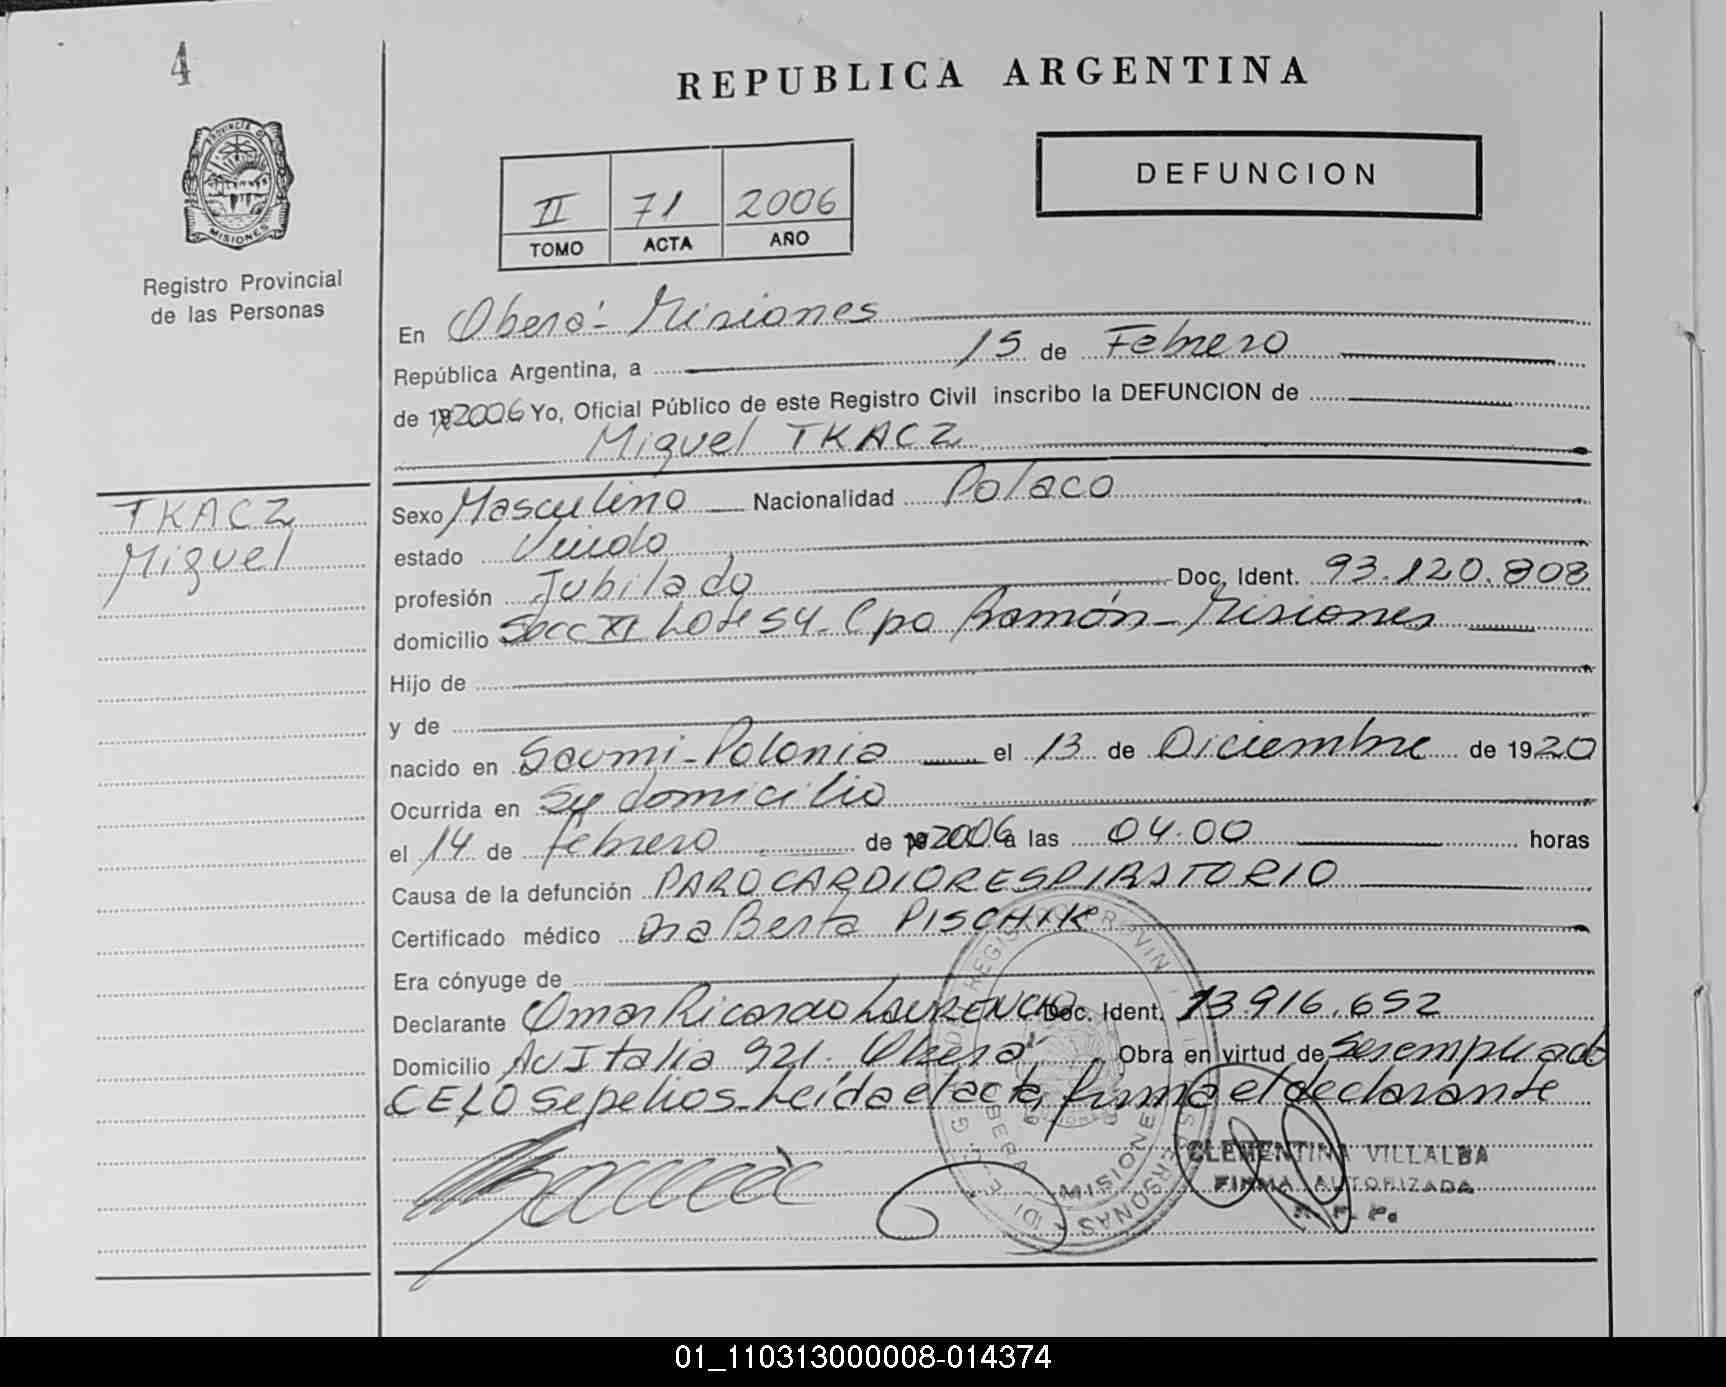 4
REPUBLICA ARGENTINA
PROVINCIA DE
MISIONES
DEFUNCION
II 71 2006
TOMO ACTA AÑO
Registro Provincial
de las Personas
En Oberá - Misiones
República Argentina, a 15 de Febrero
de 19 2006 Yo, Oficial Público de este Registro Civil inscribo la DEFUNCION de
Miguel TKACZ
TKACZ
Miguel
Sexo Masculino Nacionalidad Polaco
estado Viudo
profesión Jubilado Doc. Ident. 93.120.808
domicilio Secc XI Lote 54 - Cpo Ramón - Misiones
Hijo de
y de
nacido en Soumi - Polonia el 13 de Diciembre de 1920
Ocurrida en Su domicilio
el 14 de febrero de 19 2006 a las 04.00 horas
Causa de la defunción PARO CARDIORESPIRATORIO
Certificado médico Dra Berta PISCHIK
Era cónyuge de
Declarante Omar Ricardo LAURENCIO Doc. Ident. 13.916.652
Domicilio Av Italia 921. Oberá Obra en virtud de Ser empleado
CELO Sepelios. Leída el acta, firma el declarante
CLEMENTINA VILLALBA
FIRMA AUTORIZADA
R. P. P.
MISIONES
01_110313000008-014374